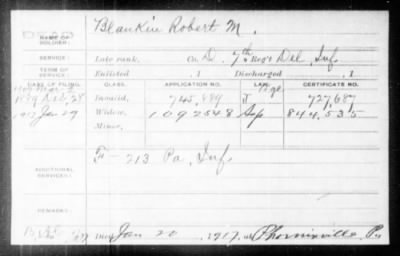 NAME OF SOLDIER: Blankin Robert M.
SERVICE: Late rank, Co. D. 7th Reg't Del. Inf
TERM OF SERVICE: Enlisted , 1 Discharged , 1
DATE OF FILING. CLASS. APPLICATION NO. LAW. CERTIFICATE NO.
1889 Dec 28 Invalid, 745,889 J 727,687
1917 Jan 29 Widow, 1092548 Ap 844,535
Minor,
ADDITIONAL SERVICES: F - 213 Pa. Inf
REMARKS:
Died Jan 20 1917, at Phoenixville, Pa